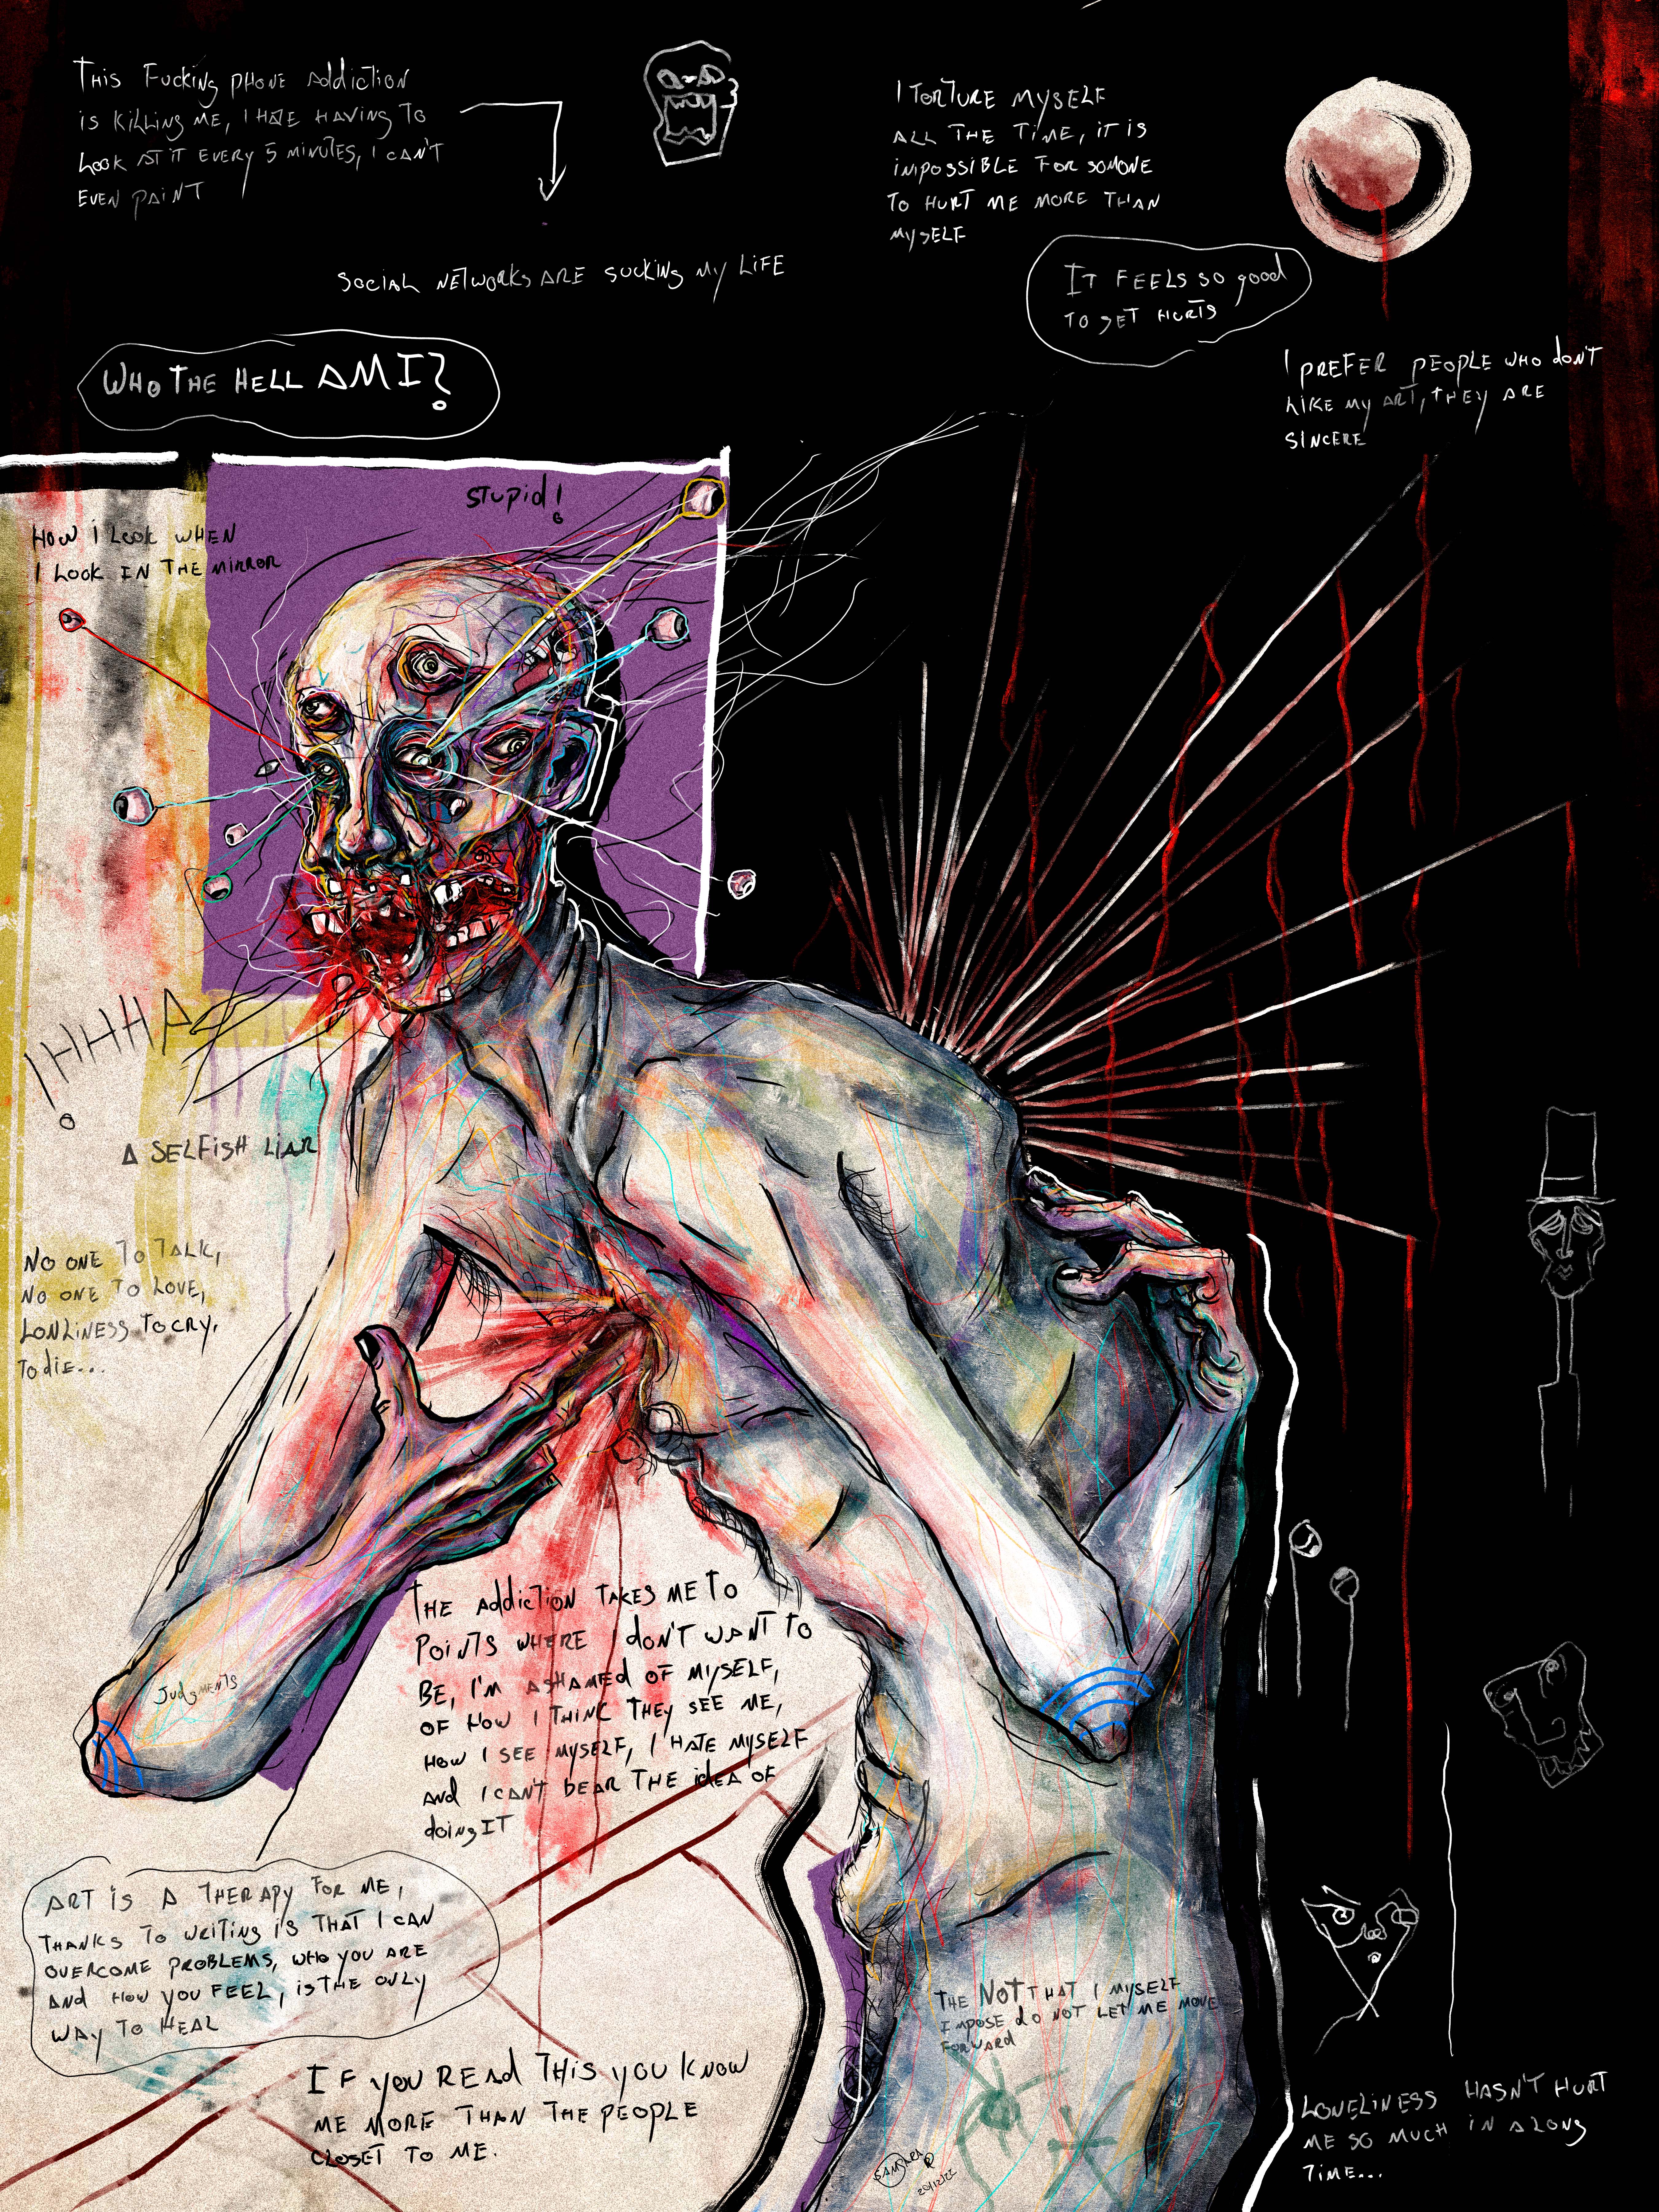 THIS FUCKING PHONE ADDICTION
IS KILLING ME, I HATE HAVING TO
LOOK AT IT EVERY 5 MINUTES, I CAN'T
EVEN PAINT
SOCIAL NETWORKS ARE SUCKING MY LIFE
I TORTURE MYSELF
ALL THE TIME, IT IS
IMPOSSIBLE FOR SOMONE
TO HURT ME MORE THAN
MYSELF
IT FEELS SO good
TO GET HURTS
I PREFER PEOPLE WHO don'T
LIKE MY ART, THEY ARE
SINCERE
WHO THE HELL AM I?
STUPId!
HOW i LOOK WHEN
I LOOK IN THE MIRROR
A SELFISH LIAR
NO ONE TO TALK,
NO ONE TO LOVE,
LONLINESS TO CRY,
TO diE...
JUDGMENTS
THE AddiCTION TAKES ME TO
POINTS WHERE I DON'T WANT TO
BE, I'M ASHAMED OF MYSELF,
OF HOW I THINC THEY SEE ME,
HOW I SEE MYSELF, I HATE MYSELF
And I CAN'T BEAR THE idEA OF
doiNg IT
ART IS A THERAPY FOR ME,
THANKS TO WRITING IS THAT I CAN
OVERCOME PROBLEMS, WHO YOU ARE
And HOW YOU FEEL, IS THE ONLY
WAY TO HEAL
IF YOU READ THIS YOU KNOW
ME MORE THAN THE PEOPLE
CLOSET TO ME.
THE NOT THAT I MYSELF
IMPOSE dO NOT LET ME MOVE
FORWARD
20/12/22
LONELINESS HASN'T HURT
ME SO MUCH IN A LONG
TIME...